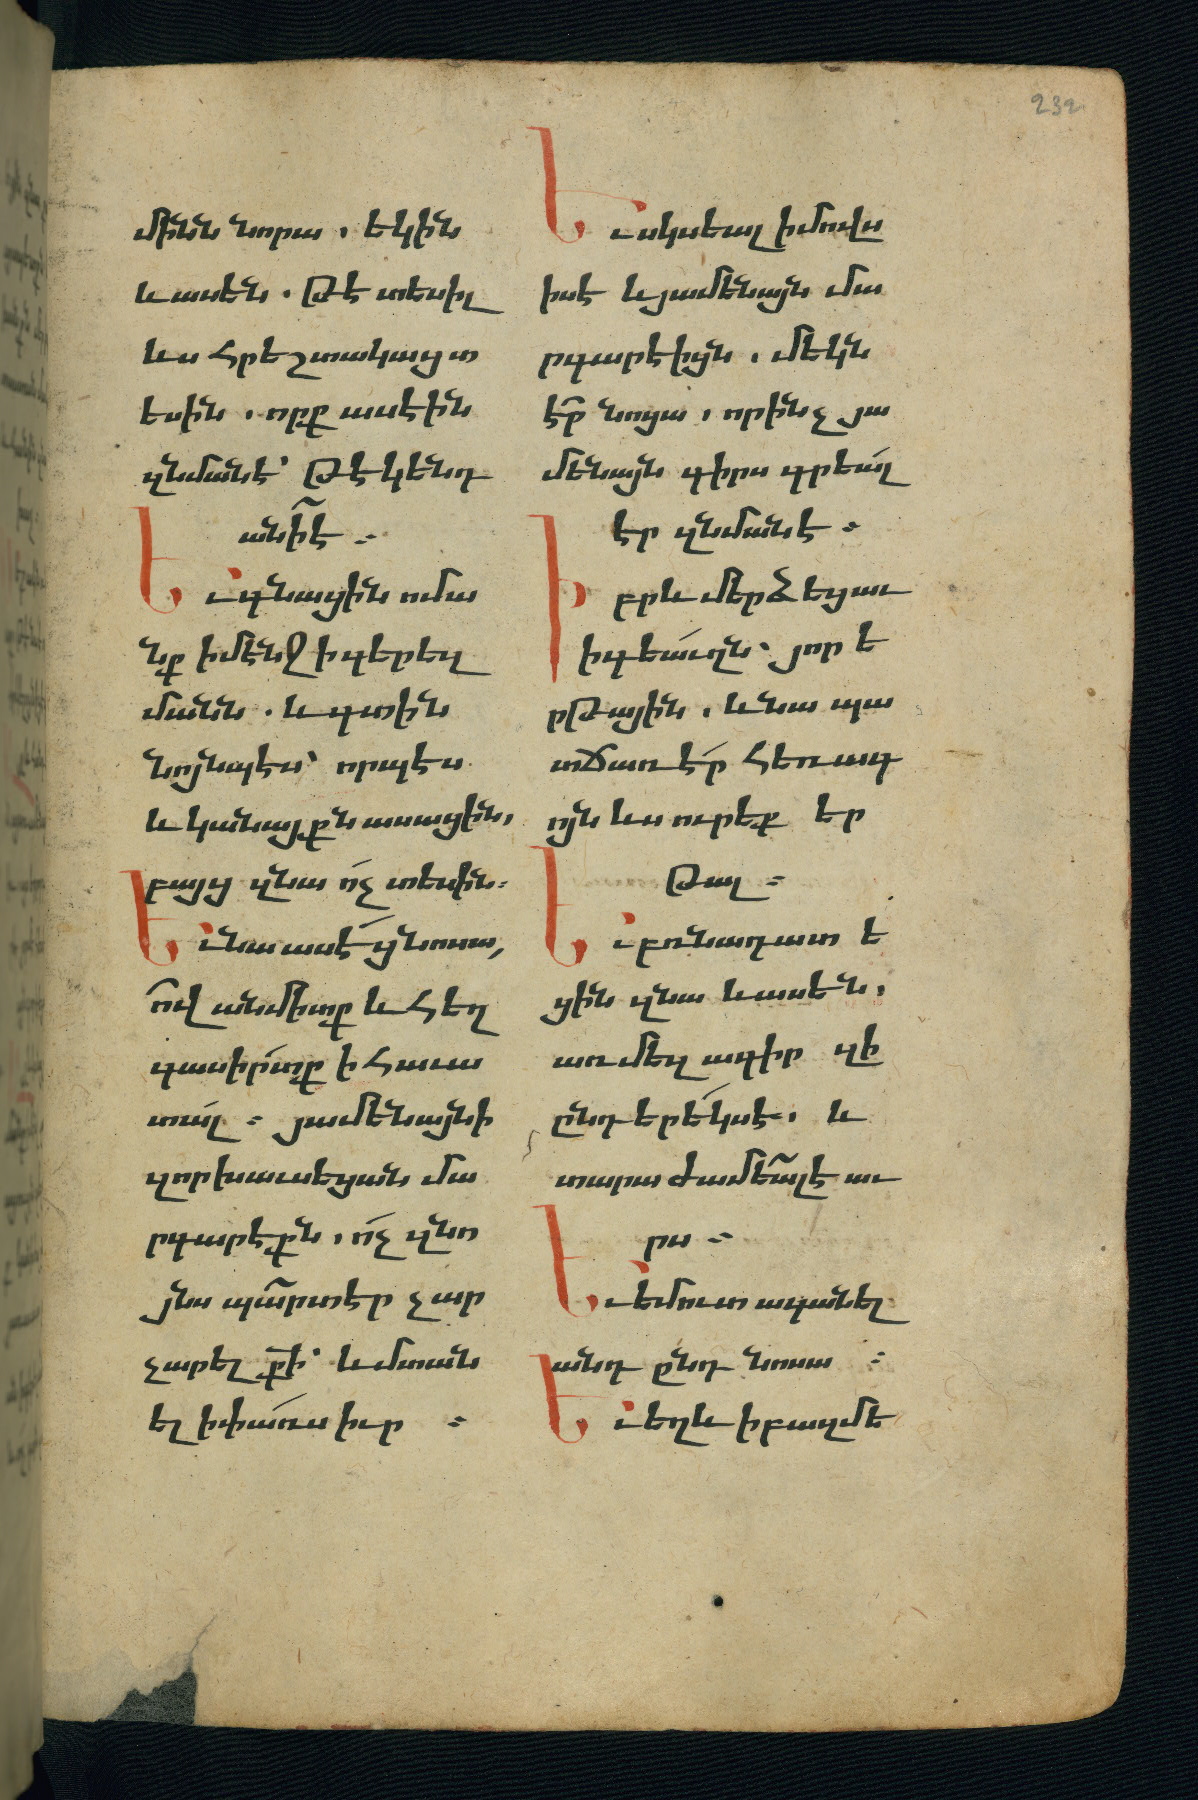 232
մինն նորա, եկին
և ասեն. Թէ տեսիլ
ևս հրեշտակաց տ
եսին. որք ասէին
զնմանէ՝ Թէ կենդ
անի է։
Եւ գնացին ոմա
նք ի մէնջ ի գերեզ
մանն. և գտին
նոյնպէս՝ որպէս
և կանայքն ասացին,
բայց զնա ո՛չ տեսին։
Եւ նա ասէ՛ ցնոսա,
ո՜վ անմիտք և հեղ
գասիրտք ի հաւա
տալ։ յամենայնի
զոր խաւսեցան մա
րգարէքն, ո՛չ զնո
յնս պարտ էր չար
չարել քի՝ և մտան
ել ի փառս իւր։
Եւ սկսեալ ի մովս
իսէ և յամենայն մա
րգարէիցն, մեկն
էր նոցա, որինչ յա
մենայն գիրս գրեալ
էր զնմանէ։
Իբրև մերձեցաւ
ի գեաւղն՝ յոր ե
րթային, և նա պա
տճառէր հեռագ
ոյն ևս ուրեք եր
թալ։
Եւ բռնադատ ե
ցին զնա և ասեն,
առ մեզ ագիր զի
ընդ երեկսէ, և
տարաժամեալ է աւ
րս։
Եւ եմուտ ագանել
անդ ընդ նոսա։
Եւ եղև ի բազմե